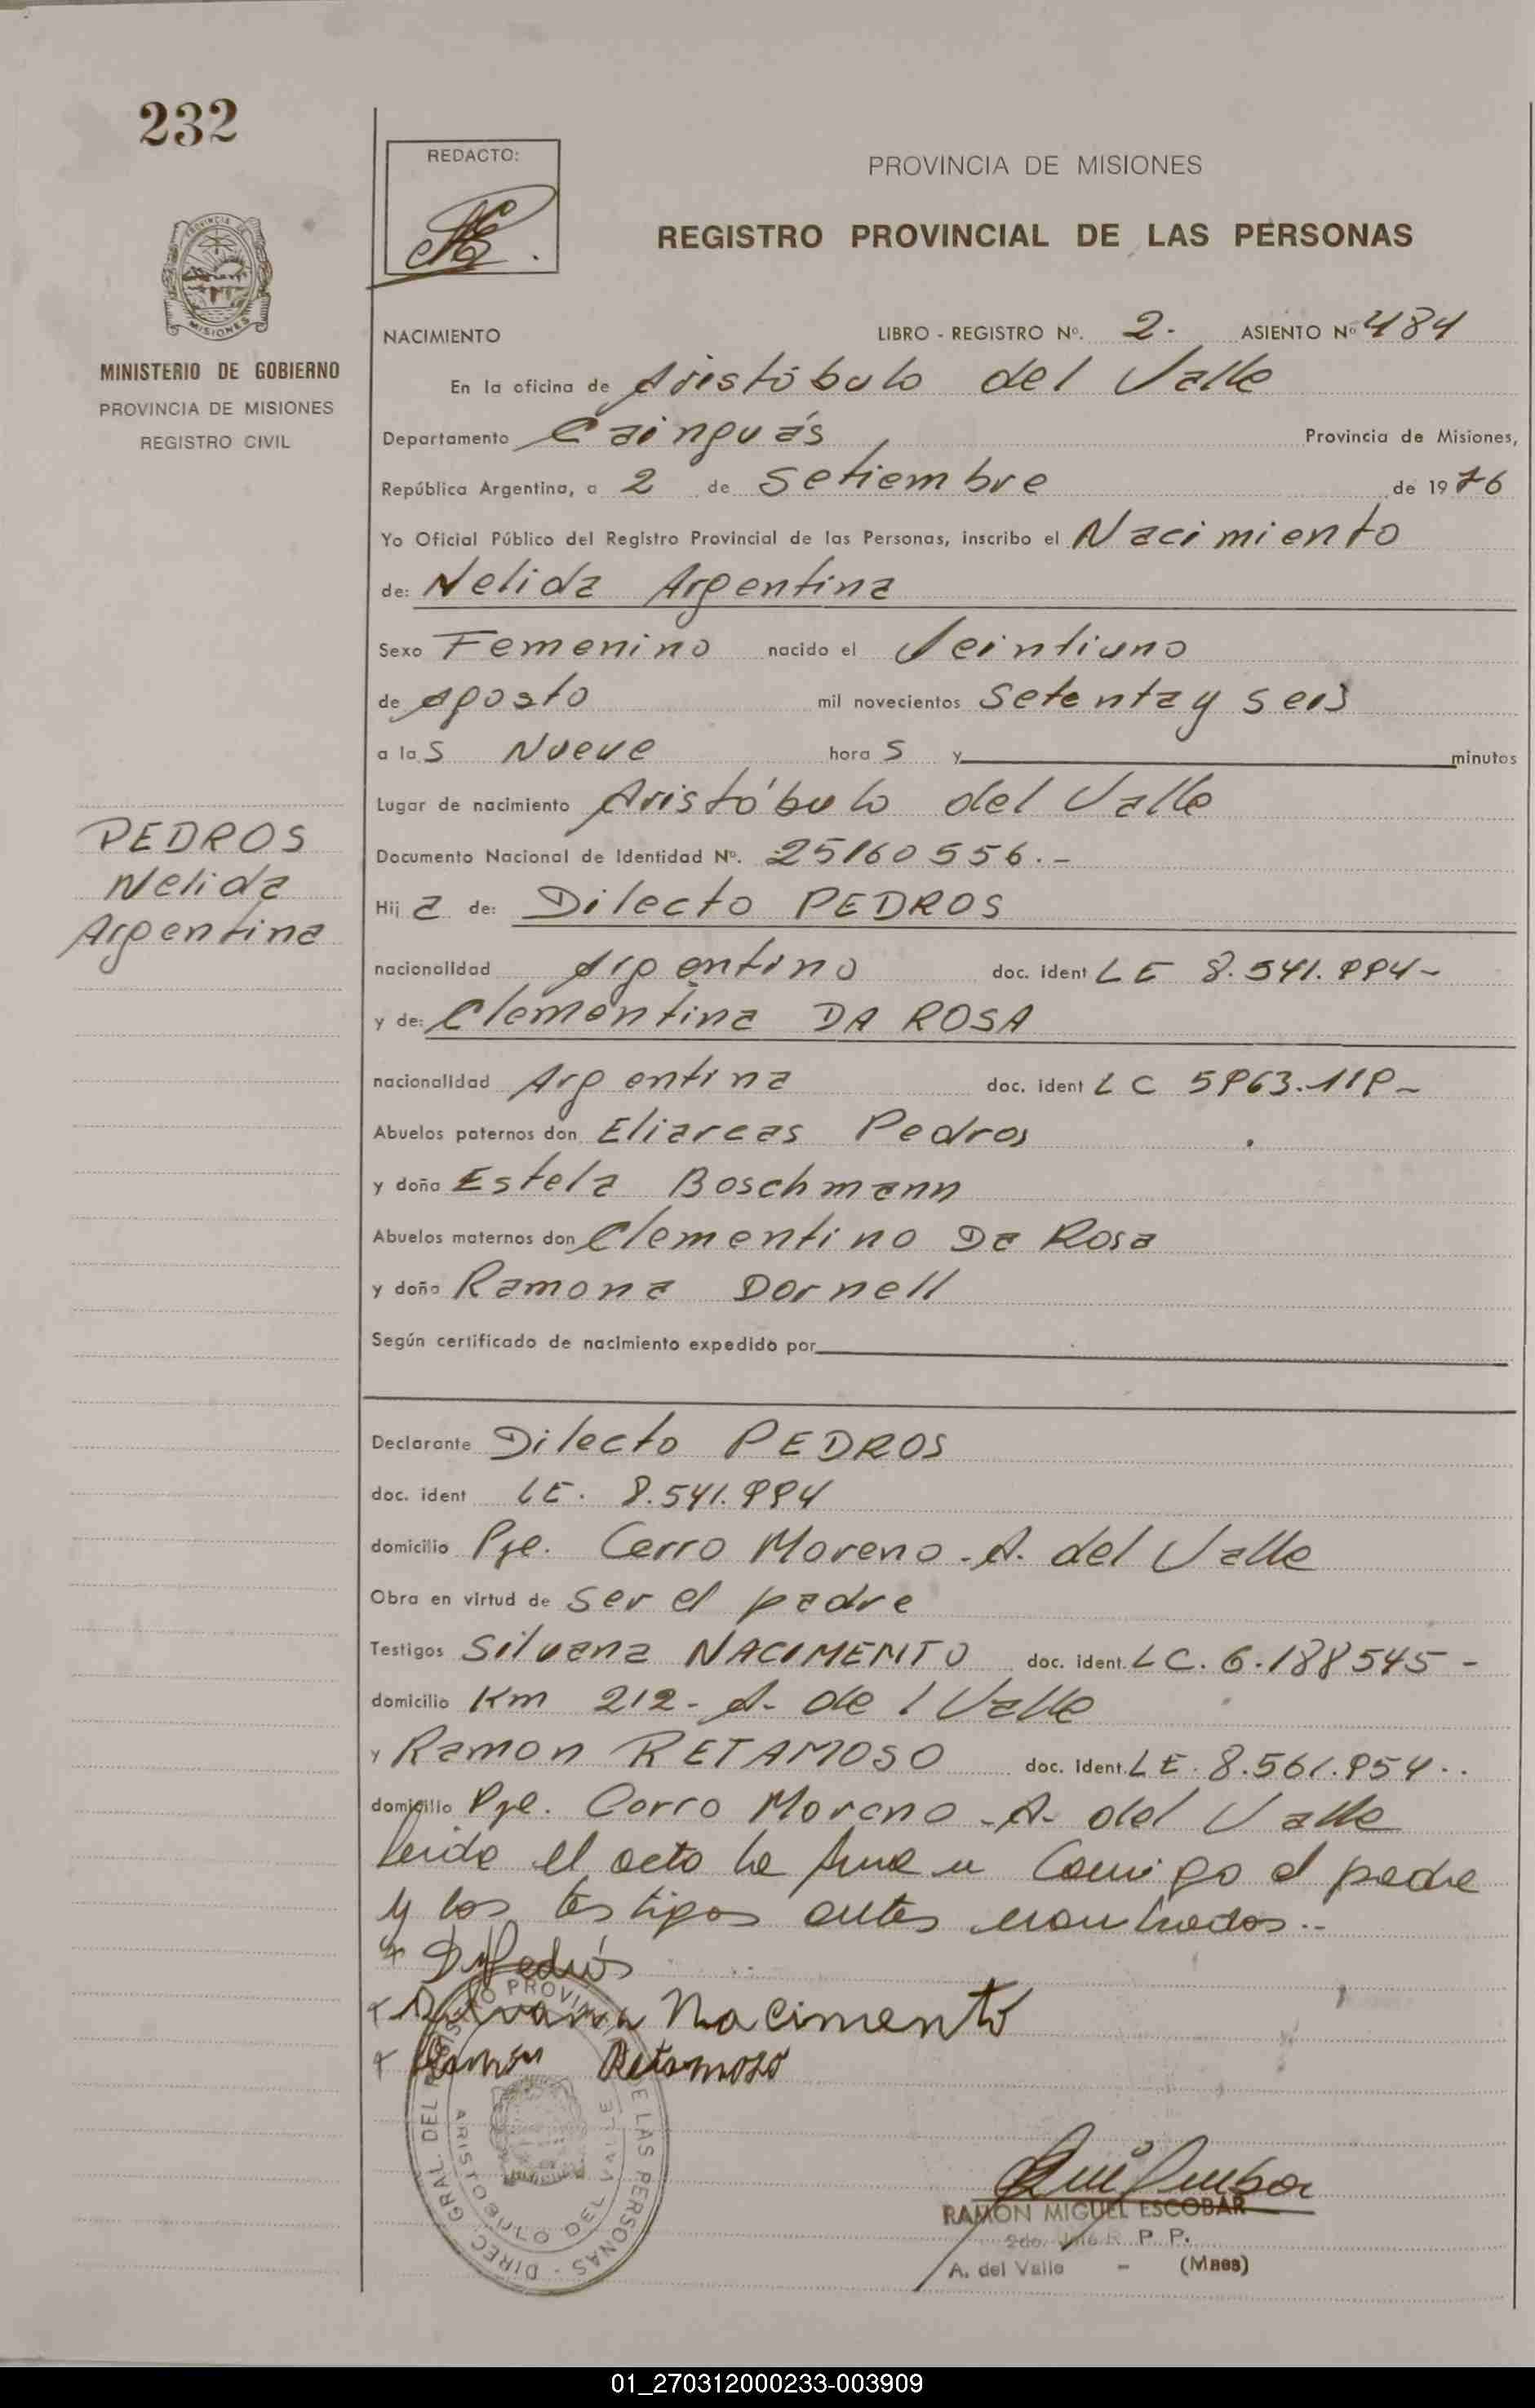 232
REDACTO:
PROVINCIA DE MISIONES
REGISTRO PROVINCIAL DE LAS PERSONAS
MISIONES
MINISTERIO DE GOBIERNO
PROVINCIA DE MISIONES
REGISTRO CIVIL
NACIMIENTO LIBRO - REGISTRO Nº. 2. ASIENTO Nº 484
En la oficina de Aristóbulo del Valle
Departamento Cainguás, Provincia de Misiones,
República Argentina, a 2 de Setiembre de 1976
Yo Oficial Público del Registro Provincial de las Personas, inscribo el Nacimiento
de: Nelida Argentina
Sexo Femenino nacido el Veintiuno
de Agosto mil novecientos Setenta y seis
a las Nueve horas y minutos
Lugar de nacimiento Aristóbulo del Valle
PEDROS
Nelida
Argentina
Documento Nacional de Identidad Nº. 25160556.-
Hija de: Dilecto PEDROS
nacionalidad Argentino doc. ident LE 8.541.994-
y de: Clementina DA ROSA
nacionalidad Argentina doc. ident LC 5963.119-
Abuelos paternos don Eliarcas Pedros
y doña Estela Boschmann
Abuelos maternos don Clementino Da Rosa
y doña Ramona Dornell
Según certificado de nacimiento expedido por
Declarante Dilecto PEDROS
doc. ident LE. 8.541.994
domicilio Pje. Cerro Moreno - A. del Valle
Obra en virtud de ser el padre
Testigos Silvana NACIMENTO doc. ident. LC. 6.188545-
domicilio Km 212- A- del Valle
y Ramon RETAMOSO doc. Ident. LE. 8.561.954..
domicilio Pje. Cerro Moreno - A- del Valle
leido el acto la firman Conmigo el padre
y los testigos antes nombrados..-
D Pedrós
Silvana Nacimento
Ramon Retamoso
DIREC. GRAL. DEL REGISTRO PROVINCIAL DE LAS PERSONAS -
ARISTOBULO DEL VALLE
RAMON MIGUEL ESCOBAR
2do. Jefe R. P. P.
A. del Valle - (Mnes)
01_270312000233-003909